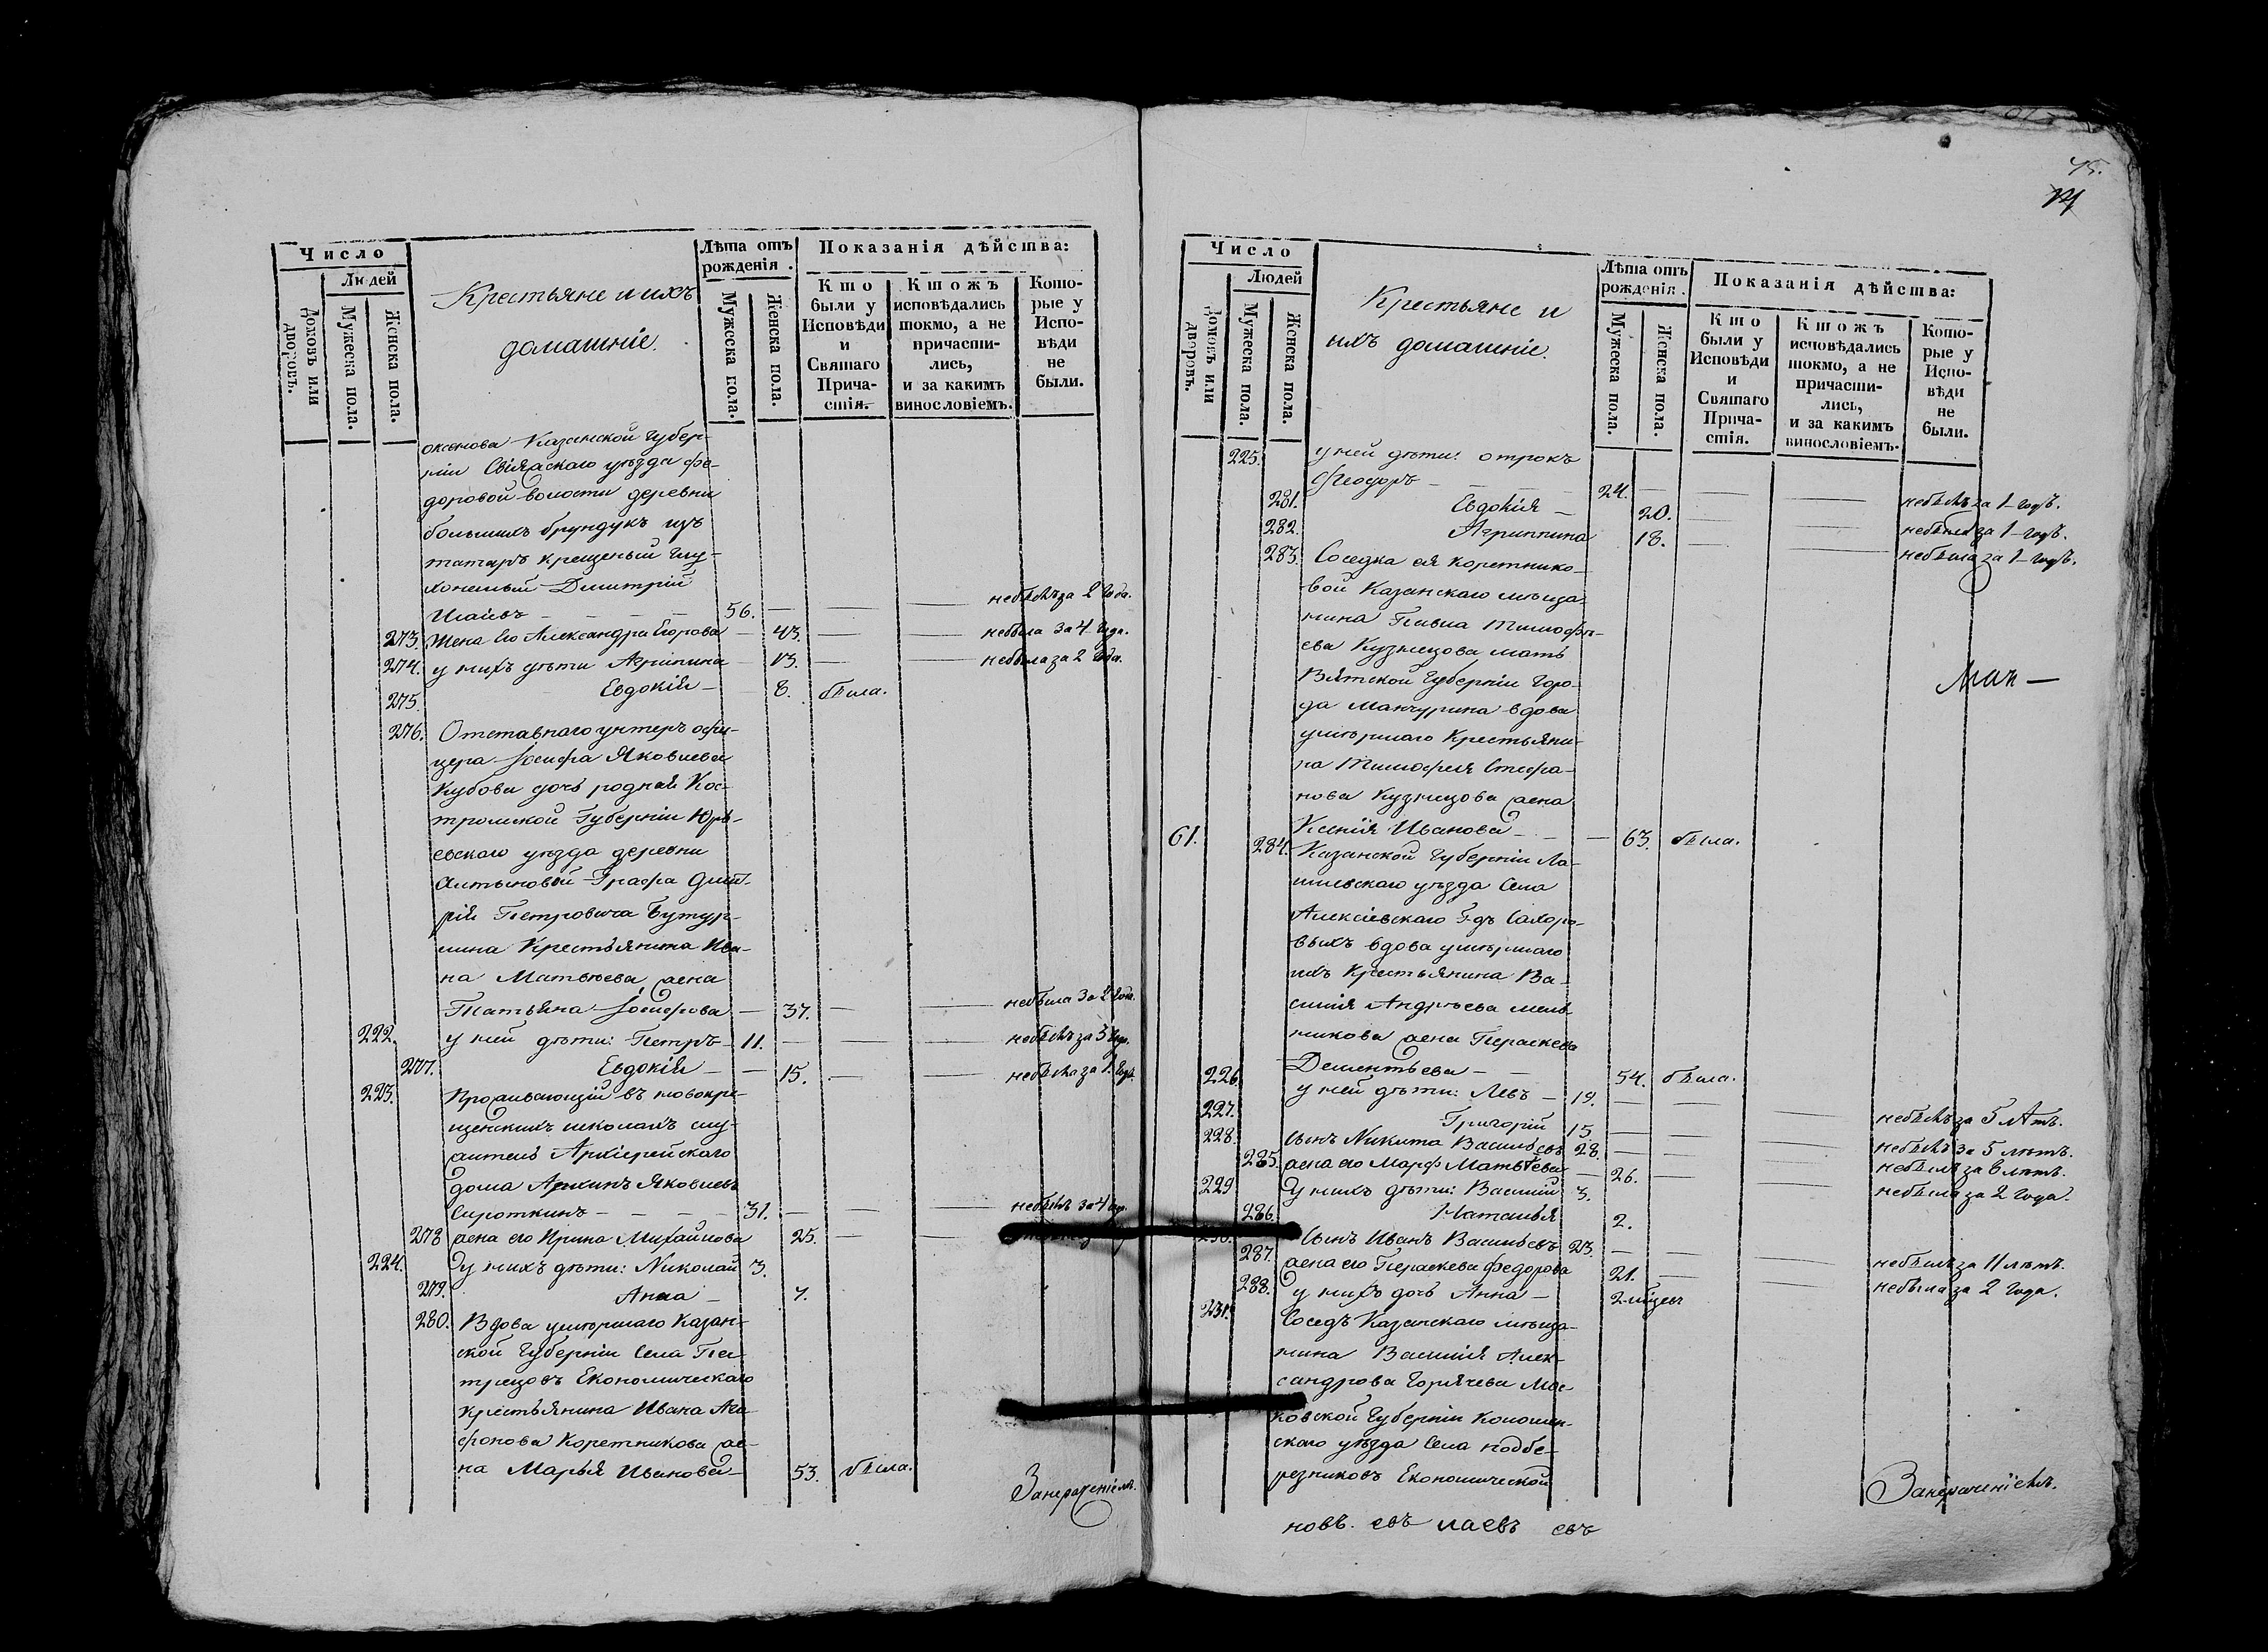 Число
Людей
Домовъ или дворовъ.
Мужеска пола.
Женска пола.
Крестьяне и ихъ
домашніе.
Лѣта отъ
рожденія.
Мужеска пола.
Женска пола.
Показанія дѣйства:
Кто
были у
Исповѣди
и
Святаго
Прича-
стія.
Ктожъ
исповѣдались
токмо, а не
причасти-
лись,
и за какимъ
винословіемъ.
Кото-
рые у
Испо-
вѣди
не
были.
Казанской Губер-
ніи Свіяжскаго уѣзда Фе-
доровой волости деревни
большихъ брундукъ изъ
татаръ крещеный глу-
хонемый Димитрій
Исаевъ — 56. — — небылъ за 2 года.
273. Жена его Александра Егорова — 43. — — небыла за 4 года.
274. у нихъ дѣти Агрипина — 13. — — небыла за 2 года.
275. Евдокія — 8. была.
276. Отставнаго унтеръ офи-
цера Іосифа Яковлева
Кубова дочь родная Кос-
тромской Губерніи Юрь-
евскаго уѣзда деревни
Алтыновой Графа Дмит-
рія Петровича Бутур-
лина Крестьянина Ива-
на Матвѣева жена
Татьяна Іосифова — 37. — — небыла за 2 года.
222. у ней дѣти: Петръ — 11. — — небылъ за 3 года.
277. Евдокія — 15. — небыла за 1 годъ.
223. Проживающій въ новокре-
щенскихъ школахъ слу-
житель Архіерейскаго
дома Архипъ Яковлевъ
Сироткинъ — 31. — — небылъ за 4 года.
278 жена его Ирина Михайлова 25. — —
224. у нихъ дѣти: Николай 3.
279. Анна — 7.
280. Вдова умершаго Казан-
ской Губерніи Села Пес-
трецовъ Економическаго
Крестьянина Ивана Ага-
фонова Коретникова же-
на Марья Иванова — 53. была.
Занерачениемъ.
75.
Число
Людей
Домовъ или дворовъ.
Мужеска пола.
Женска пола.
Крестьяне и
ихъ домашніе.
Лѣта отъ
рожденія.
Мужеска пола.
Женска пола.
Показанія дѣйства:
Кто
были у
Исповѣди
и
Святаго
Прича-
стія.
Ктожъ
исповѣдались
токмо, а не
причасти-
лись,
и за какимъ
винословіемъ.
Кото-
рые у
Испо-
вѣди
не
были.
225. у ней дѣти: отрокъ
Феодоръ — 24. — — — небылъ за 1 годъ.
281. Евдокія — 20. — — небыла за 1 годъ.
282. Агриппина 18. — — небыла за 1 годъ.
283. Соседка ея Коретнико-
вой Казанскаго мѣща-
нина Павла Тимофѣ-
ева Кузнецова мать
Вятской Губерніи Горо-
да Манчурина вдова
умершаго Крестьяни-
на Тимофея Стефа-
нова Кузнецова жена
Ксенія Иванова — 63. была.
61. 284. Казанской Губерніи Ла-
ишевскаго уѣзда Села
Алексіевскаго Г-дъ Сахаро-
выхъ вдова умершаго
ихъ Крестьянина Ва-
силія Андреева мель-
никова жена Параскева
Дементьева — 54. была.
226. у ней дѣти: Левъ — 19. — — — небылъ за 5 лѣтъ.
227. Григорій 15. — — — небылъ за 5 лѣтъ.
228. Сынъ Никита Васильевъ 28. — — — небылъ за 6 лѣтъ.
285. жена его Марфа Матвѣева — 26. — — небыла за 2 года.
229 у нихъ дѣти: Василій 3.
286. Наталья 2.
230. Сынъ Иванъ Васильевъ 23. — — небылъ за 11 лѣтъ.
287. жена его Параскева Федорова 21. — — небыла за 2 года.
288. у нихъ дочь Анна — 2 мѣсец
231. Соседъ Казанскаго мѣща-
нина Василія Алек-
сандрова Горячева Мос-
ковской Губерніи Коломен-
скаго уѣзда Села подбе-
резниковъ Економической
Занерачениемъ.
новъ. евъ лаевъ евъ